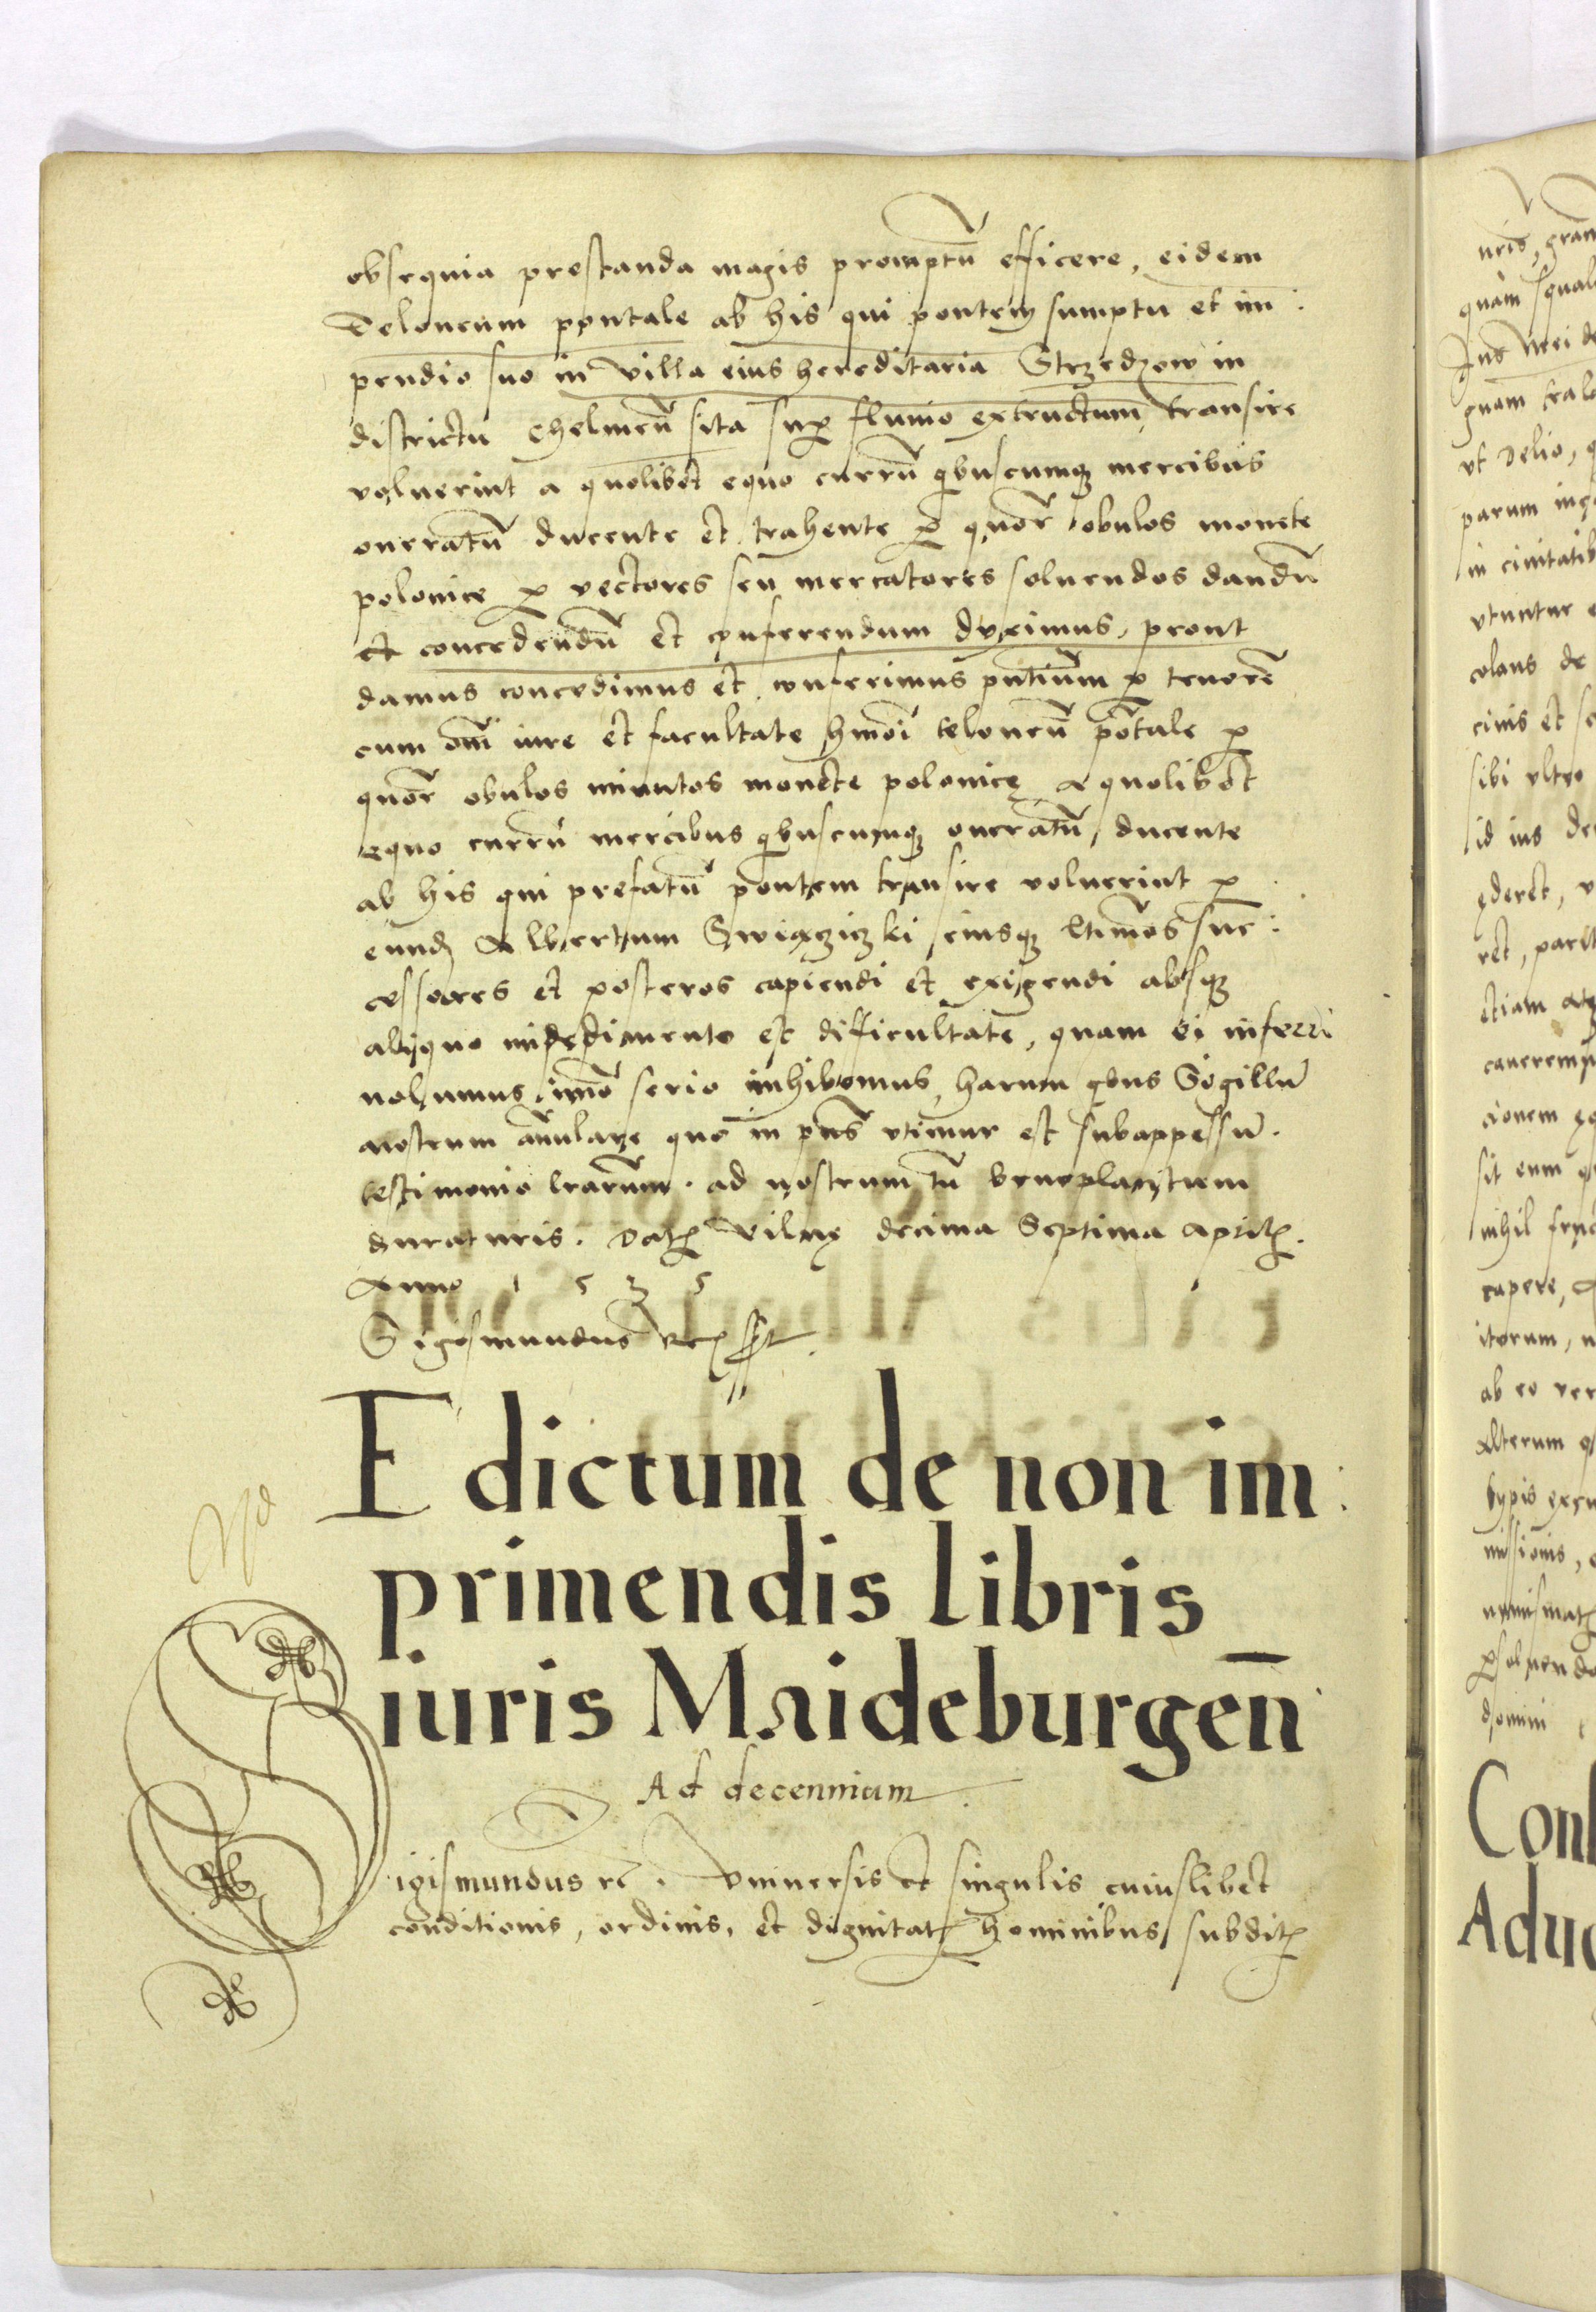 obsequia prestanda magis promptū efficere, eidem
Teloneum pontale ab his qui pontem sumptu et im:
pendio suo in villa eius hereditaria Strzedzow in
districtu Chelmeñ sita sup fluuio extructum transire
voluerint a quolibet equo currū qbuscumq mercibus
oneratū ducente et trahente p quor obulos monete
polonice p vectores seu mercatores soluendos dandū
et concedendū et conferendum duximus, prout
damus concedimus et conferimus pñtium p tenorē
cum om̄i iure et facultate hmoi teloneū pōtale p
quor obulos minutos monete polonicę a quolibet
equo currū mercibus qbuscumq oneratū, ducente
ab his qui prefatū pontem transire voluerint p
eund Albertum Swiączicki eiusq ltimos suc:
cessores et posteros capiendi et exigendi absq
aliquo impedimento et difficultate, quam ei inferri
nolumus, imo serio inhibemus, harum qbus Sigillū
nostrum añulare quo in pñs vtimur est subappessū.
testimonio lrarum. ad nostrum tñ beneplacitum
duraturis. Dat Vilnę decima Septima Aprilis.
Anno 1 5 3 5
Sigismundus Rex sst
Edictum de non im:
primendis libris
iuris Maideburgeñ
Ad decennium
Sigismundus rc. Vniuersis et singulis cuiuslibet
conditionis, ordinis, et dignitatis hominibus subditis
nris, gram
quam squal
Ius
quam
vt
parum
in ciuitatib
vtuntur
colans de
ciuis et
sibi vltro
id ius
ederet,
ret,
etiam atq
cauerem
cionem
sit eum
nihil
capere,
itorum,
ab eo
Alterum
typis
missionis,
numismat
psoluendo
domini
Con
Aduo